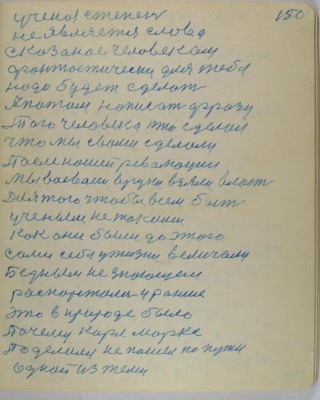 150
ученая степень
не является слова
сказаное человеком
фронтостически для тебя
надо будет сделат
Апотом написат фразу
Того человека это сделал
что мы свами сделали
После нашей революции
Мы воевали в руки взяли власт
Для того чтобы всем быт
учеными не такими
Как они были до этого
сами себя у жизни величали
Бедным не знающем
распортали и рание
это в природе было
Почему Карл Маркс
Поделили не пошел по пути
одной из теми